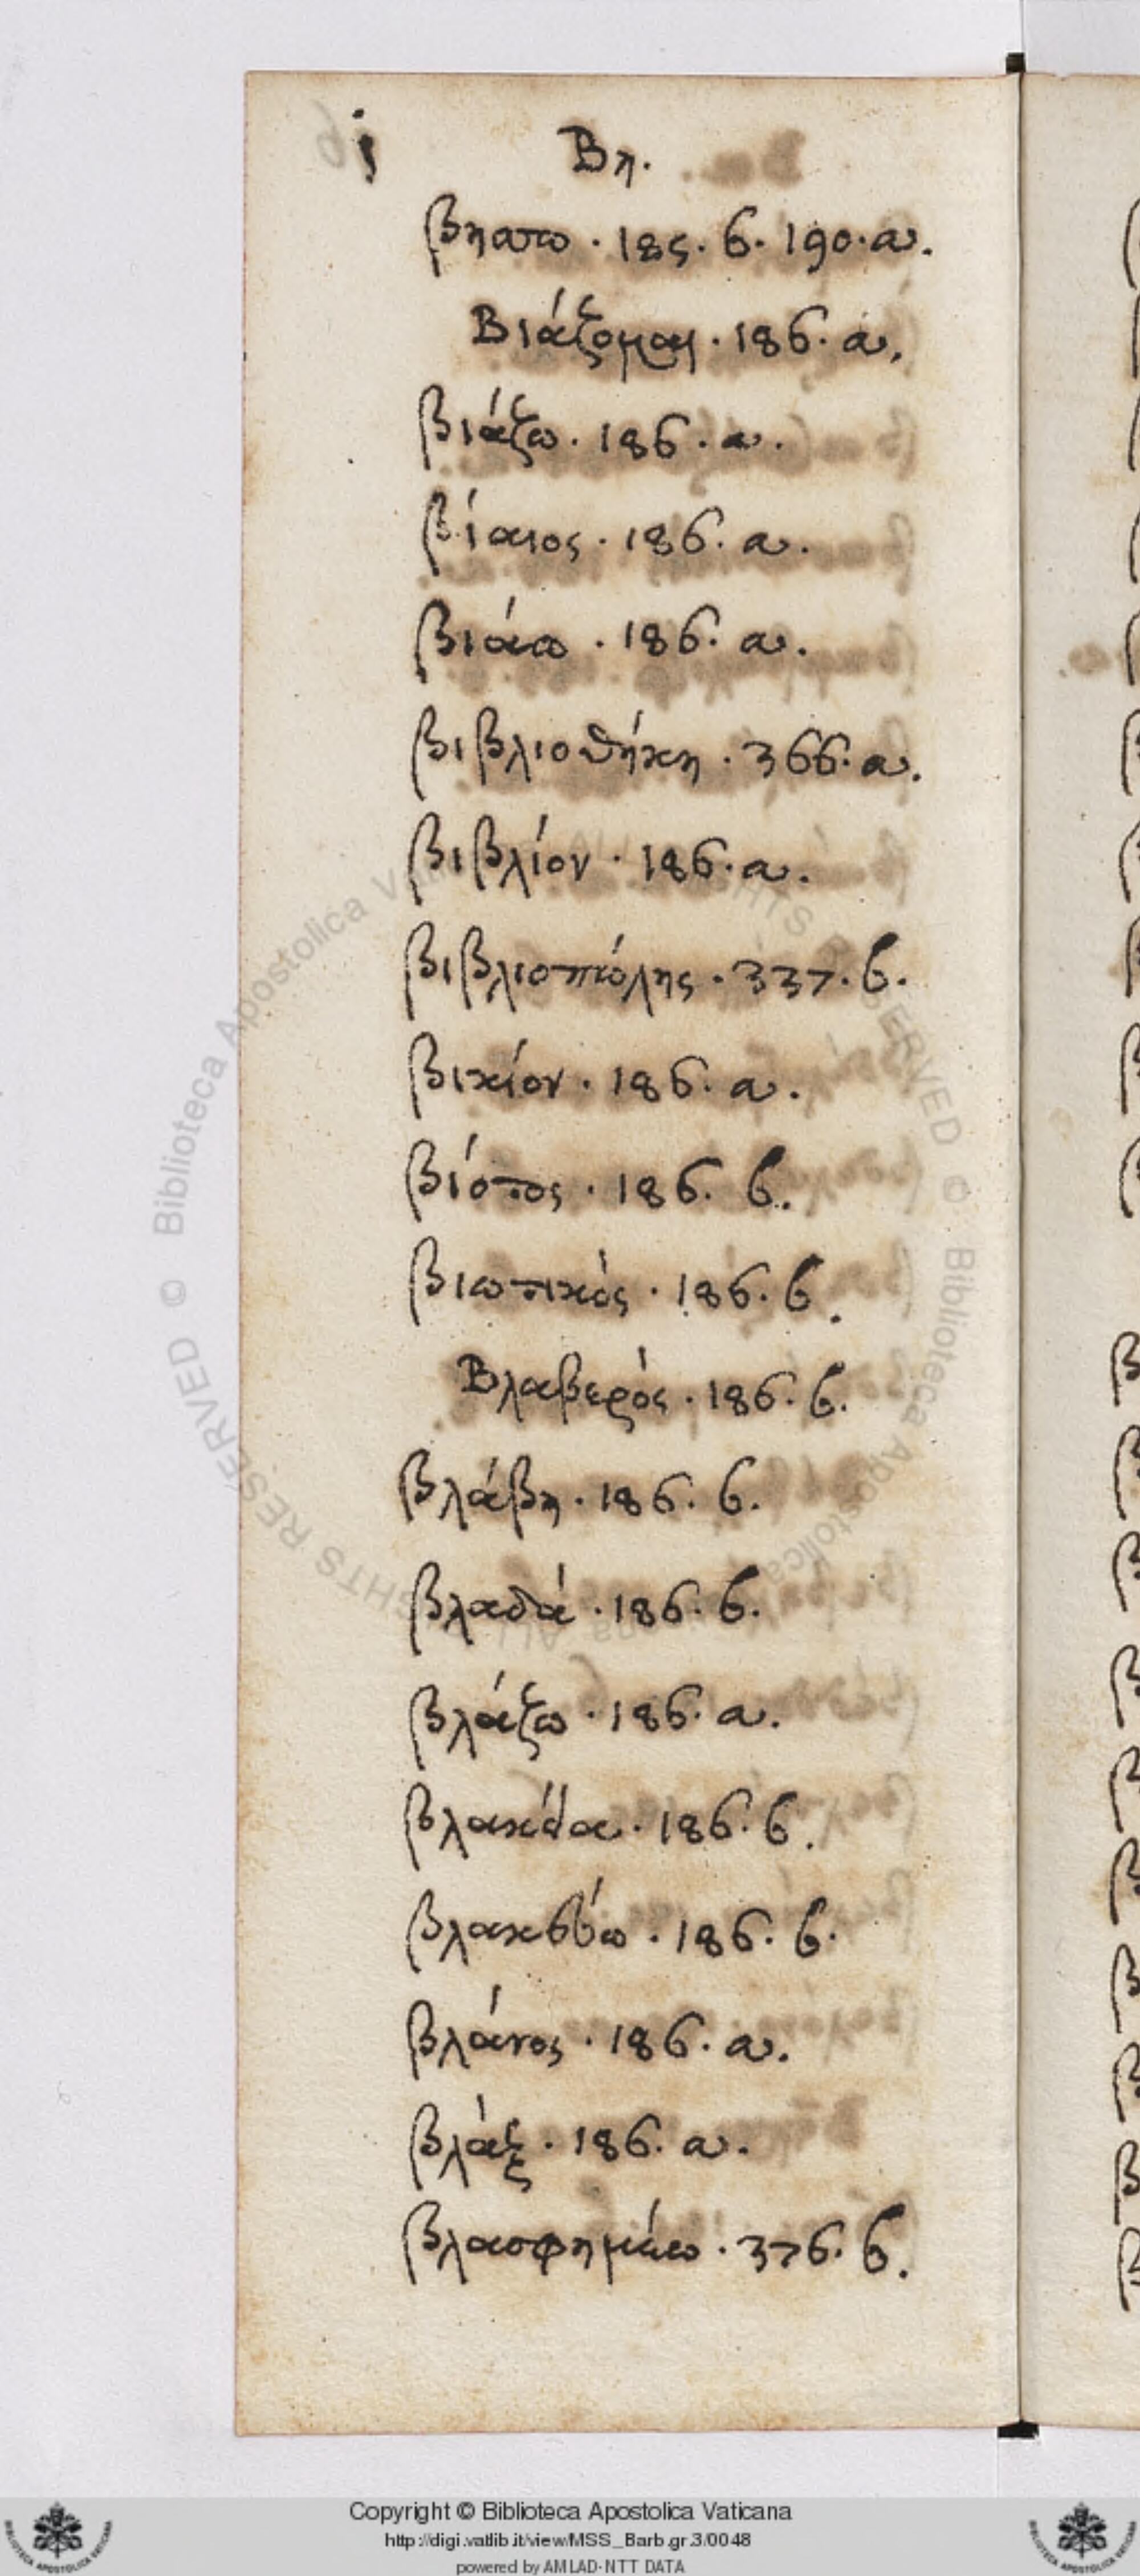 Βη.
βηατω · 185. 6. 190. a.
Βιάζομαι · 186. a.
βιάζω · 186. a.
βίαιος · 186. a.
βιάω · 186. a.
βιβλιοθήκη · 366. a.
βιβλίον · 186. a.
βιβλιοπώλης · 337. b.
βικίον · 186. a.
βίοτος · 186. b.
βιωτικός · 186. b.
Βλαβερός · 186. b.
βλάβη · 186. b.
βλαδά · 186. b.
βλάζω · 186. a.
βλακεία · 186. b.
βλακεύω · 186. b.
βλάνος · 186. a.
βλάξ · 186. a.
βλασφημέω · 376. b.
Copyright © Biblioteca Apostolica Vaticana
http://digi.vatlib.it/view/MSS_Barb.gr.3/0048
powered by AMLAD-NTT DATA